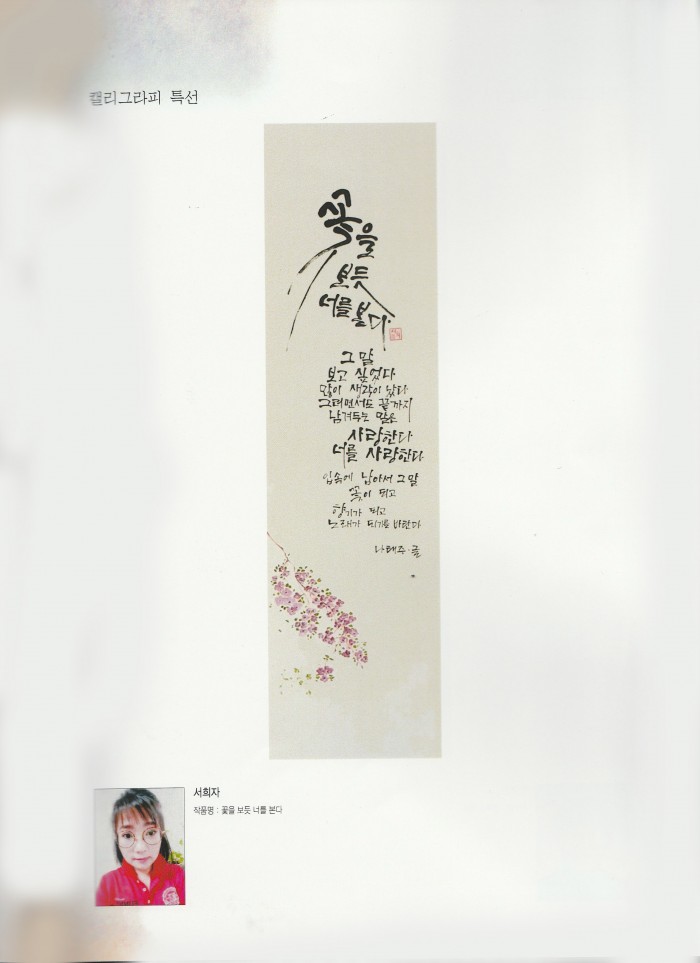 캘리그라피 특선
꽃을
보듯
너를 본다.
그 말
보고 싶었다
많이 생각이 났다
그러면서도 끝까지
남겨두는 말은
사랑한다
너를 사랑한다
입속에 남아서 그 말
꽃이 되고
향기가 되고
노래가 되기를 바란다
나태주·글
서희자
작품명 : 꽃을 보듯 너를 본다